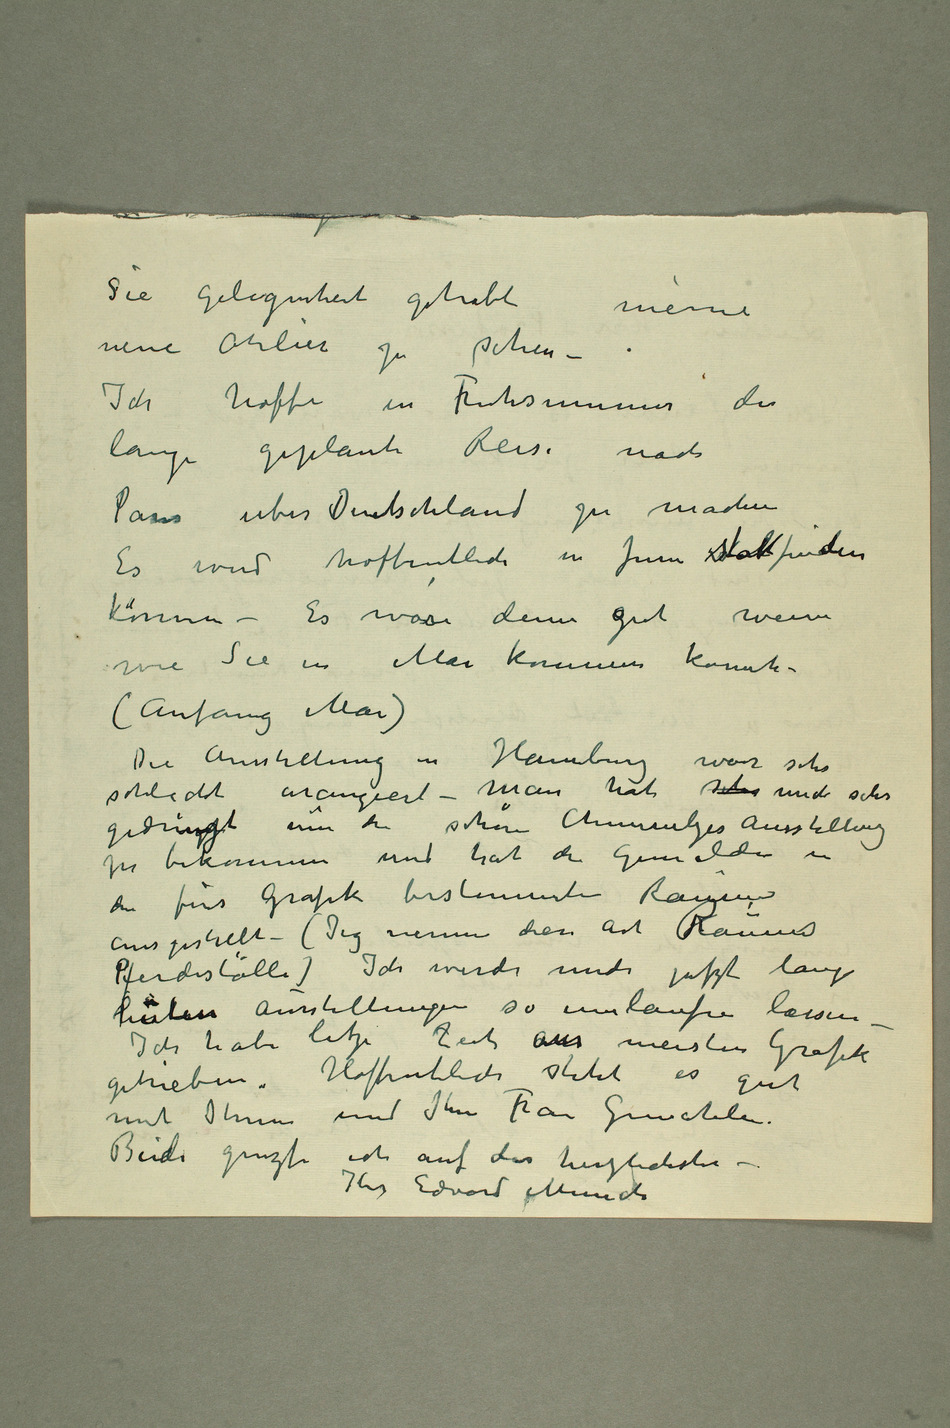 Sie gelegenheit gehabt meine
neue Atelier zu sehen –
Ich hoffe in Fruhsummer die
lange geplante Reise nach
Paris uber Deutschland zu machen
Es wird hoffentlich in Juni stattfinden
können – Es wäre denn gut wenn
wie Sie in Mai kommen konnte –
(Anfang Mai)
Die Ausstellung in Hamburg war sehr
schlecht arangiert – Man hat sehr mich sehr
gedrängt um die schöne Chemnitzer Ausstellung
zu bekommen und hat die Gemälde in
die fürs Grafik bestemmte Räume
ausgestellt – (Jeg nenne diese Art Räume
Pferdeställe) Ich werde mich jetzt lange
hüten Ausstellungen so umlaufen lassen –
Ich habe letze Zeit am meisten Grafik
getrieben. Hoffentlich steht es gut
mit Ihnen und Ihre Frau Gemahlin.
Beide grüsse ich auf das herzlichste –
Ihr Edvard Munch